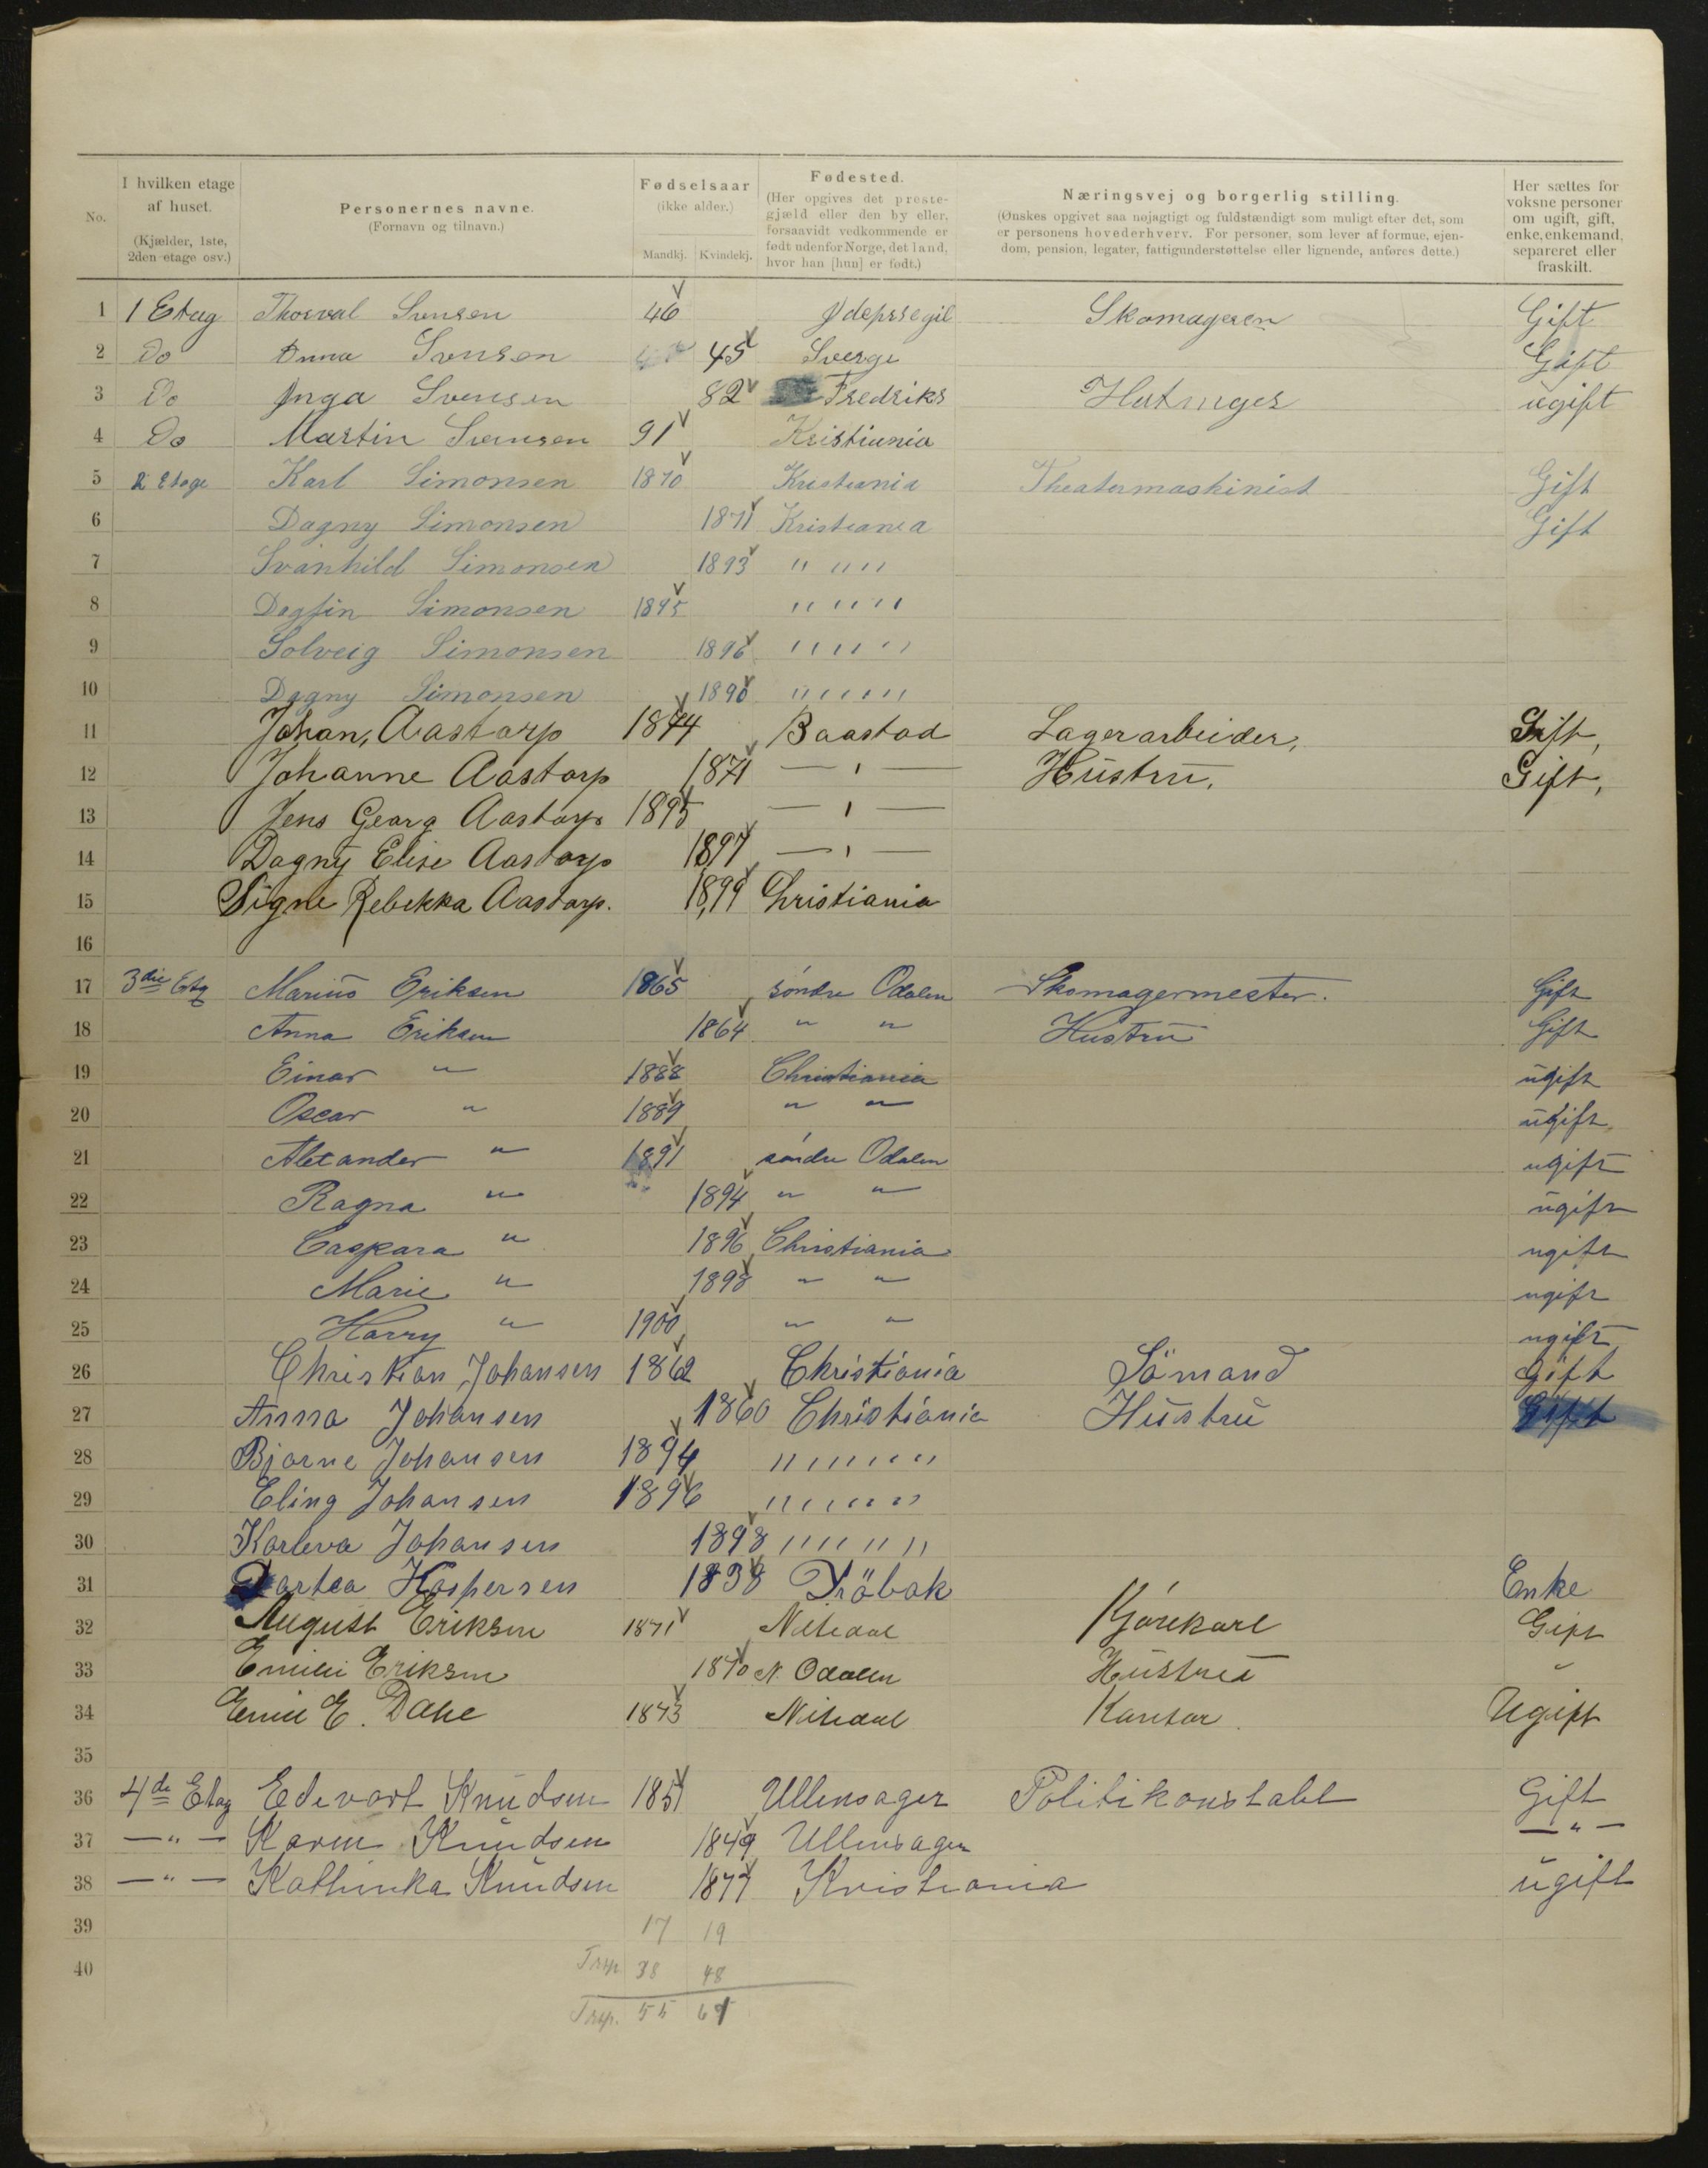 No.
I hvilken etage af huset. (Kjælder, 1ste, 2den etage osv.)
Personernes navne. (Fornavn og tilnavn.)
Fødselsaar (ikke alder.) Mandkj. Kvindekj.
Fødested. (Her opgives det prestegjæld eller den by eller, forsaavidt vedkommende er født udenfor Norge, det land, hvor han [hun] er født.)
Næringsvej og borgerlig stilling. (Ønskes opgivet saa nøjagtigt og fuldstændigt som muligt efter det, som er personens hovederhverv. For personer, som lever af formue, ejendom, pension, legater, fattigunderstøttelse eller lignende, anføres dette.)
Her sættes for voksne personer om ugift, gift, enke, enkemand, separeret eller fraskilt.
1 1 Etag Thorval Svensen 46 Skomageren Gift
2 Do Anna Svensen 45 Sverge Gift
3 Do Inga Svensen 82 Fredriks ugift
4 Do Martin Svensen 91 Kristiania
5 2 Etage Karl Simonsen 1870 Kristiania Theatermaskinist Gift
6 Dagny Simonsen 1871 Kristiania Gift
7 Svanhild Simonsen 1893 " " " "
8 Dagfin Simonsen 1895 " " " "
9 Solveig Simonsen 1896 " " " "
10 Dagny Simonsen 1890 " " " "
11 Johan, Aastorp 1844 Baastad Lagerarbeider, Gift,
12 Johanne Aastorp 1871 — " — Hustru, Gift,
13 Jens Georg Aastorp 1895 — " —
14 Dagny Elise Aastorp 1897 — " —
15 Signe Rebekka Aastorp. 1899 Christiania
16
17 3die Etg Marius Eriksen 1865 søndre Odalen Skomagermester. Gift
18 Anna Eriksen 1864 " " Hustru Gift
19 Einar " 1888 Christiania ugift
20 Oscar " 1889 " " ugift
21 Alexander " 1891 søndre Odalen ugift
22 Ragna " 1894 " " ugift
23 Caspara " 1896 Christiania ugift
24 Marie " 1898 " " ugift
25 Harry " 1900 " " ugift
26 Christian Johansen 1862 Christiania Sömand Gift
27 Anna Johansen 1860 Christiania Hustru Gift
28 Bjarne Johansen 1894 " " " "
29 Eling Johansen 1896 " " " "
30 Karleva Johansen 1898 " " " "
31 Dortea Kaspersen 1838 Dröbak Enke
32 August Eriksen 1871 Nitedal Kjørekarl Gift
33 Emilie Eriksen 1870 N. Odalen Hustru "
34 Emil E. Dahle 1873 Nitedal Kontor Ugift
35
36 4de Etag Edevart Knudsen 1851 Ullensager Politikonstabl Gift
37 — " — Karen Knudsen 1849 Ullensager — " —
38 — " — Kathinka Knudsen 1877 Kristiania ugift
39 17 19
40 Trsp. 38 48
Trsp. 55 67